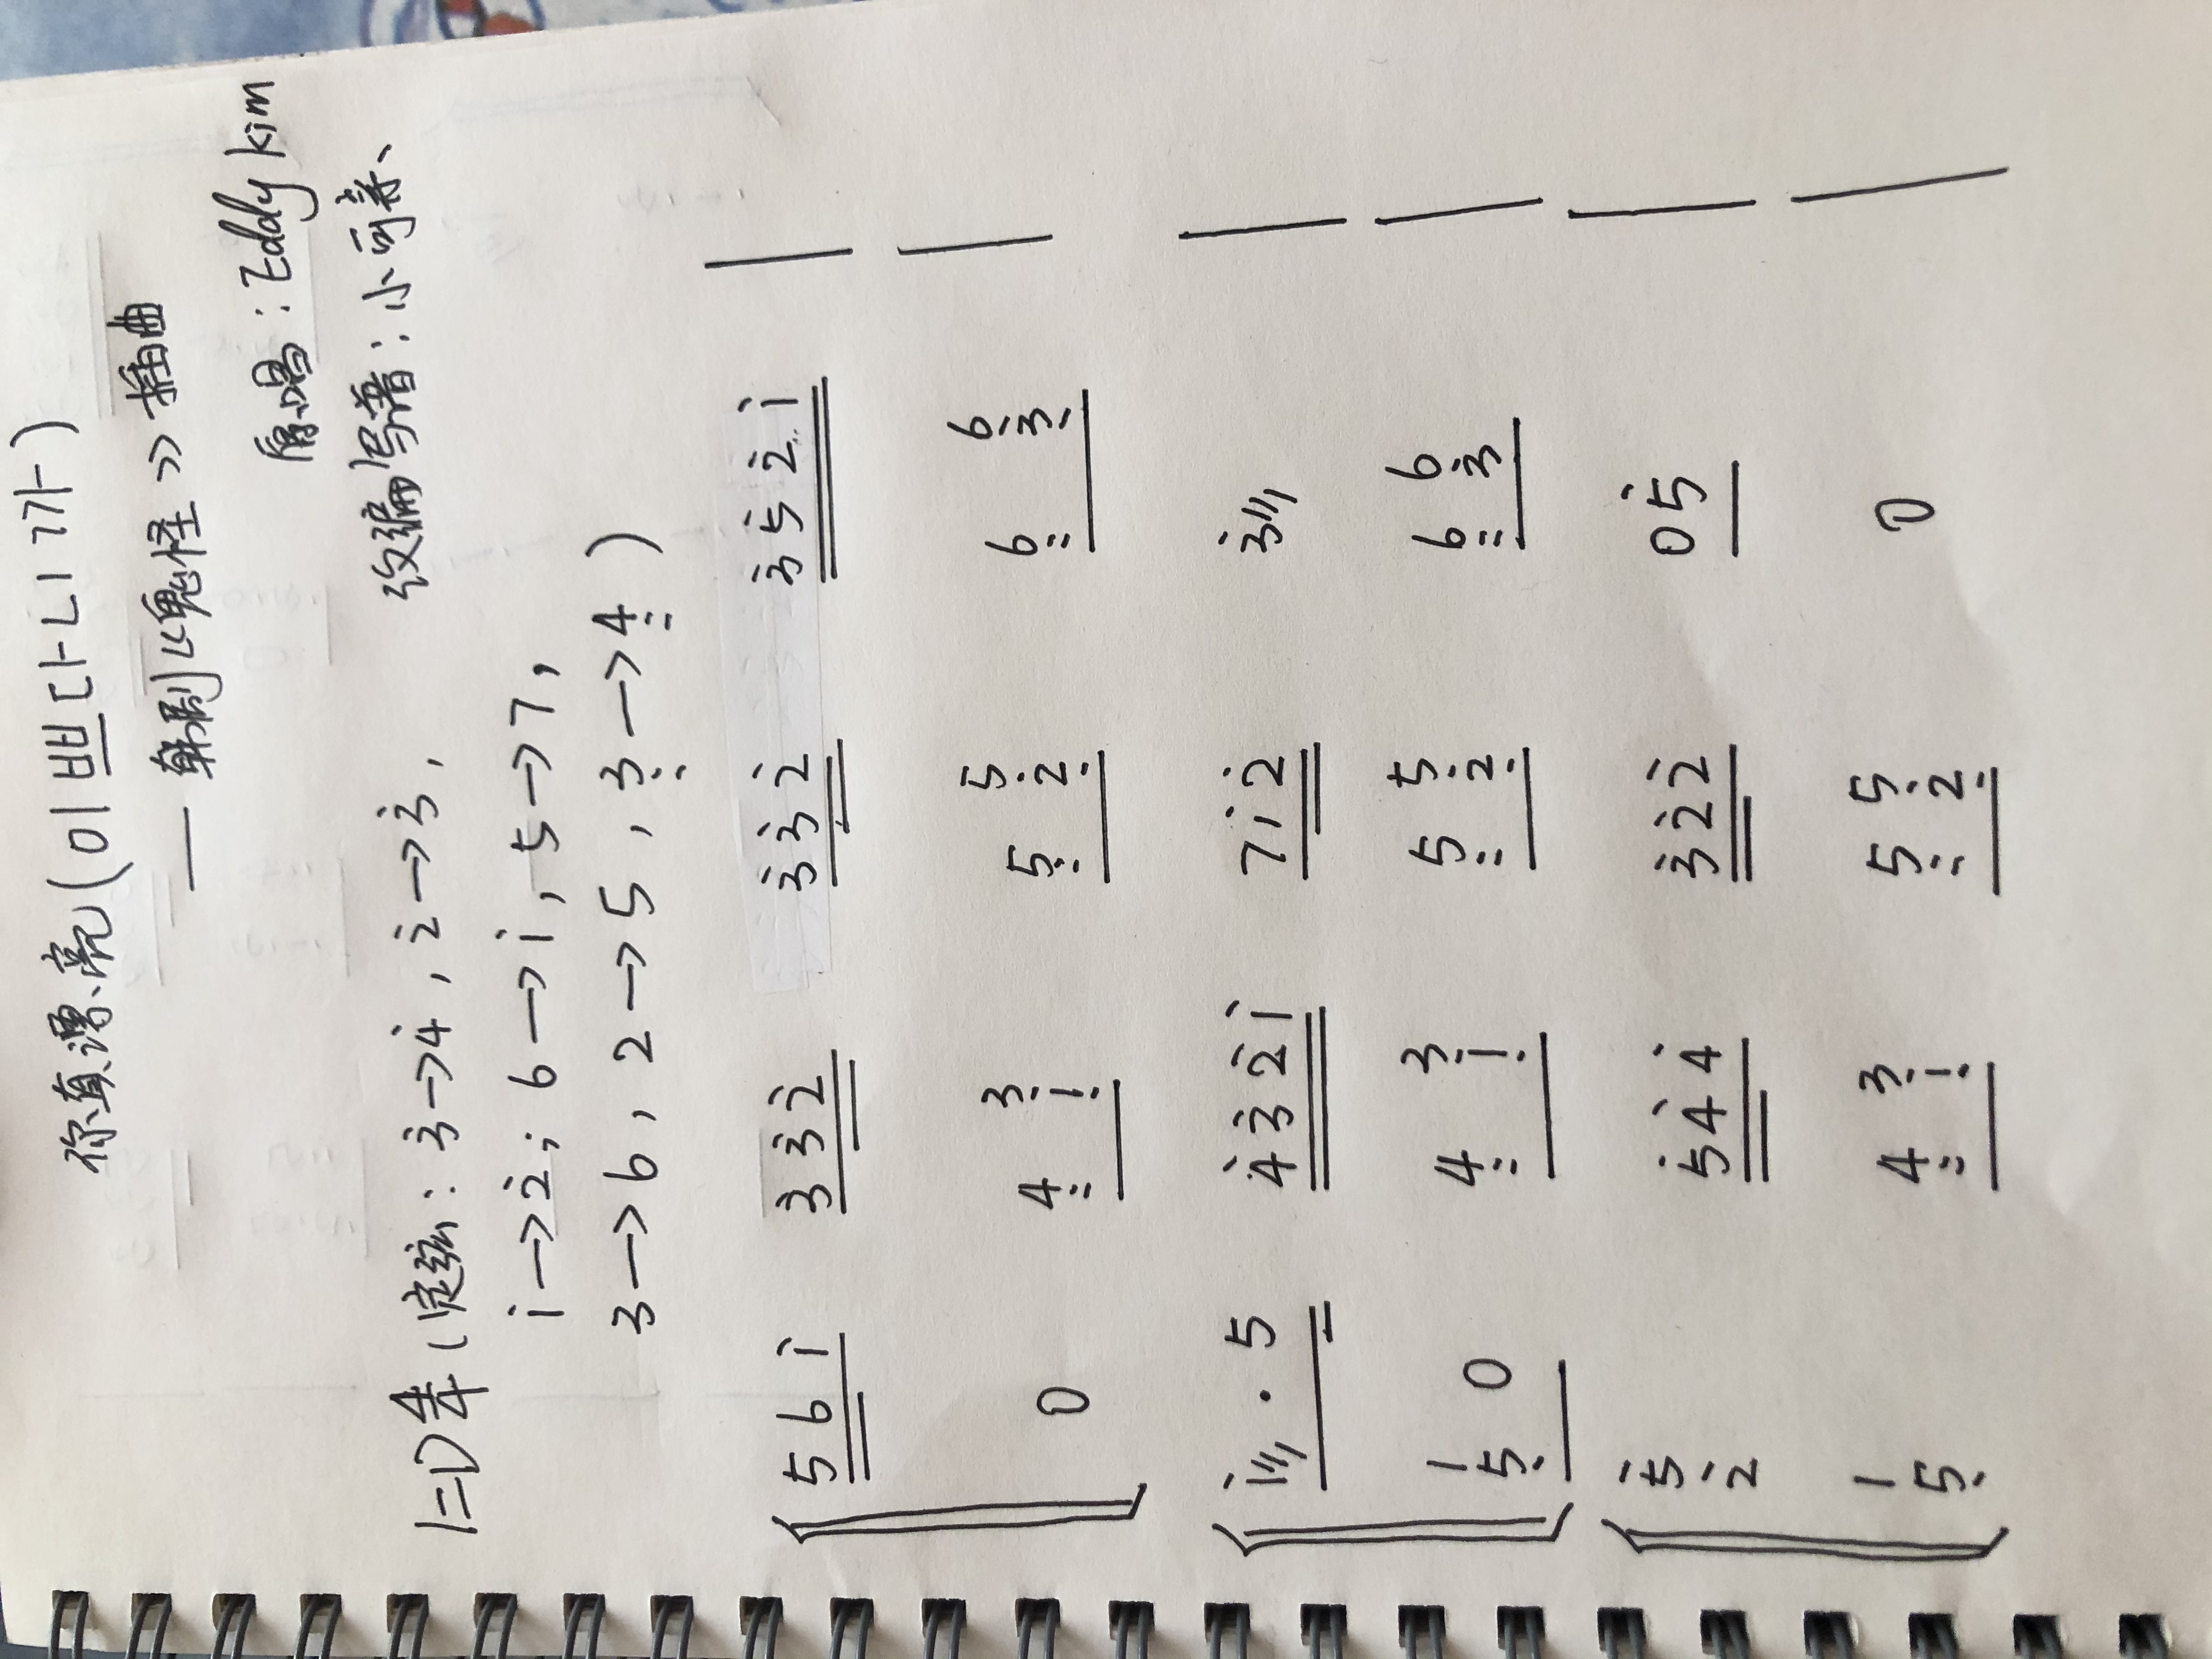 你真漂亮(이쁘다니까)
— 韩剧《鬼怪》插曲
原唱:Eddy Kim
改编写谱:小可亲
1=D 4/4 (定弦: 3̇→4̇, 2̇→3̇,
1̇→2̇; 6→1̇, 5→7,
3→6, 2→5, 3̤→4̤ )
5 6 1̇ 3̇ 3̇ 2̇ 3̇ 3̇ 2̇ 3̇ 5̇ 2̇ 1̇ |
3̣ 5̣ 6̣
0 4̤ 1̣ 5̤ 2̣ 6̤ 3̣ |
1̇/// · 5 4̇ 3̇ 2̇ 1̇ 7 1̇ 2̇ 3̇/// |
1 3̣ 5̣ 6̣
5̣ 0 4̤ 1̣ 5̤ 2̣ 6̤ 3̣ |
5̇
2̇ 5̇ 4̇ 4̇ 3̇ 2̇ 2̇ 0 5̇ |
1 3̣ 5̣
5̣ 4̤ 1̣ 5̤ 2̣ 0 |